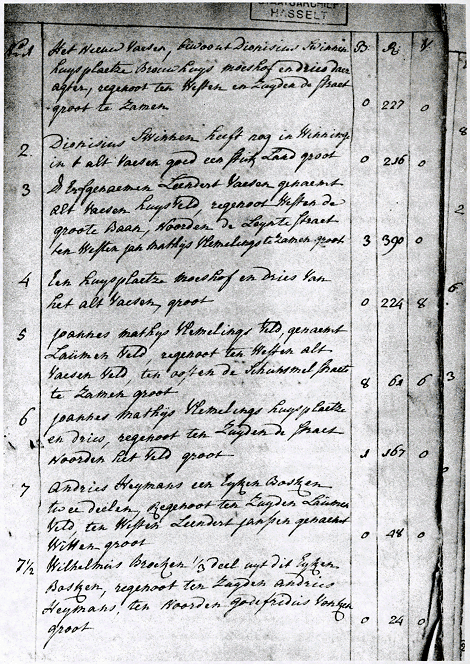 HASSELT
N.1 Het Nieuw Vaesen, bewoont Dionisius Swinnen B R V
huysplaetze Brouwhuys moeshof en dries daer
agter, regenoot ten Westen en Zuyden de straet
groot te Zamen 0 227 0
2 Dionisius Swinnen heeft nog in Winninge
in t alt Vaesen goed een stuk Land groot 0 216 0
3 D'Erfgenaemen Leendert Vaesen genaemt
alt Vaesen huys Veld, regenoot Westen de
groote Baan, Noorden de Leynte straet
ten Westen jan Mathys Vlemelings te Zamen groot 3 390 0
4 Een huysplaetze moeshof en dries Van
het alt Vaesen, groot 0 224 8
5 joannes Mathys Vlemelings Veld, genaemt
Laumen Veld, regenoot ten Westen alt
Vaesen Veld, ten oosten de straete
te Zamen groot 8 61 6
6 joannes Mathijs Vlemelings huysplaetze
en dries, regenoot ten Zuyden de straet
Noorden het Veld groot 1 167 0
7 Andries Heymans een Eyken Bosken
twee deelen, Regenoot ten Zuyden Laumen
Veld, ten Westen Leendert janssen genaemt
Witten groot 0 48 0
7½ Wilhelmus Broeken 1/3 deel uyt dit Eyken
Bosken, regenoot ten Zuyden andries
Heymans, ten Noorden godefridus Vonken
groot 0 24 0
8
2
6
3